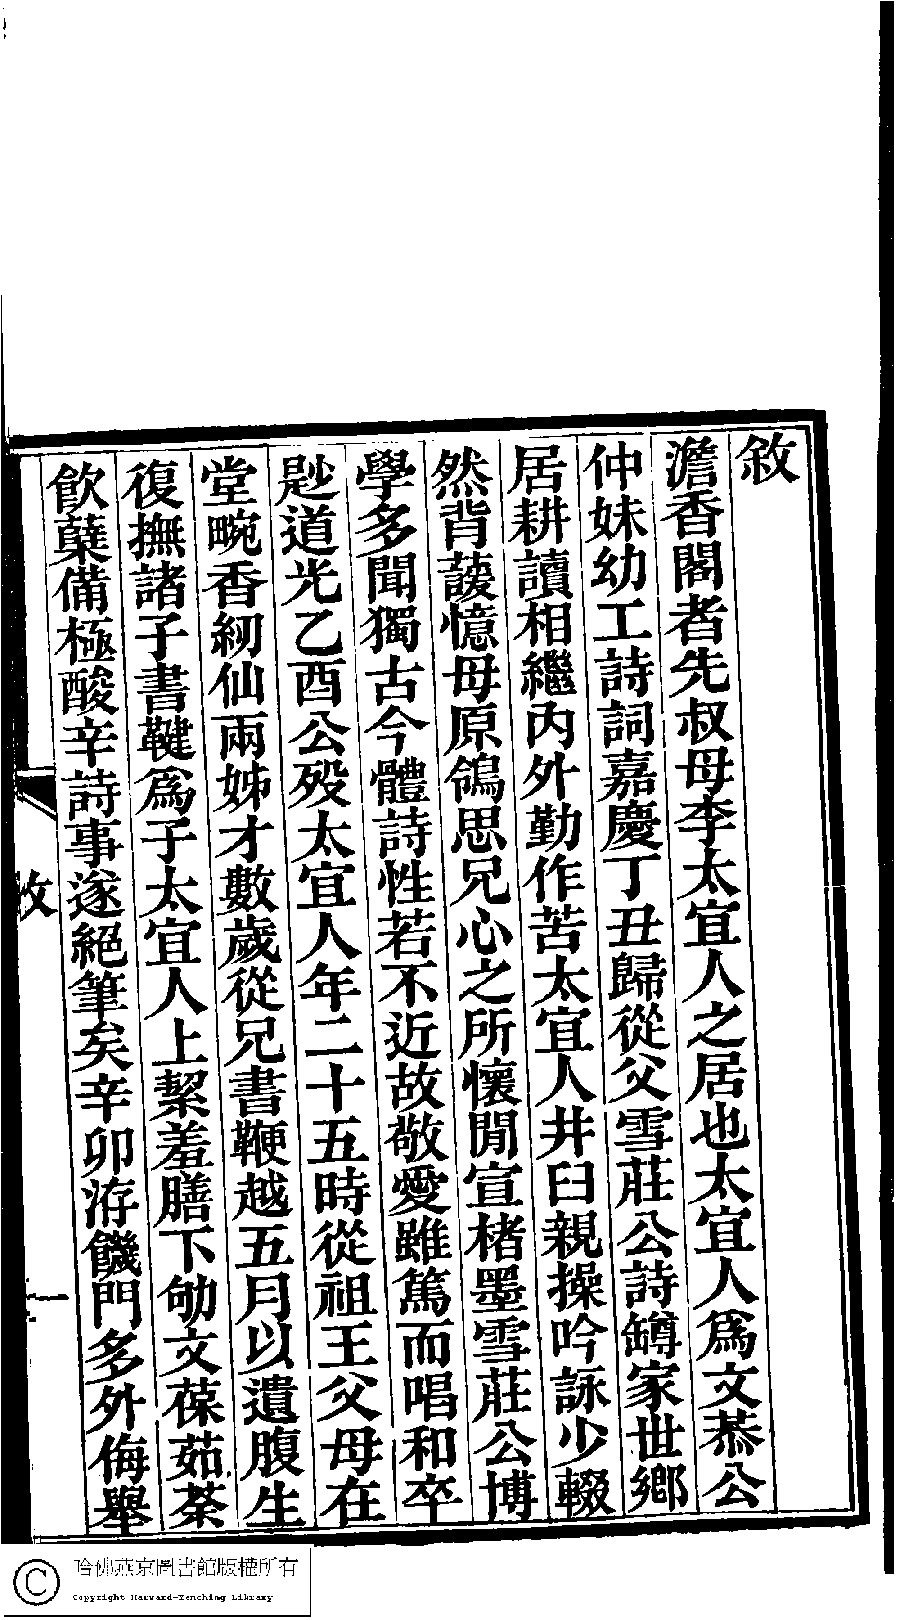 敘
澹香閣者先叔母李太宜人之居也太宜人爲文恭公
仲妹幼工詩詞嘉慶丁丑歸從父雪莊公詩鱄家世鄉
居耕讀相繼內外勤作苦太宜人井臼親操吟詠少輟
然背蘐憶母原鴒思兄心之所懷閒宣楮墨雪莊公博
學多聞獨古今體詩性若不近故敬愛雖篤而唱和卒
尟道光乙酉公歿太宜人年二十五時從祖王父母在
堂畹香紉仙兩姊才數歲從兄書鞭越五月以遺腹生
復撫諸子書鞬爲子太宜人上絜羞膳下劬文葆茹荼
飲蘗備極酸辛詩事遂絕筆矣辛卯洊饑門多外侮舉
敘
一
哈佛燕京圖書館版權所有
Copyright Harvard-Yenching Library